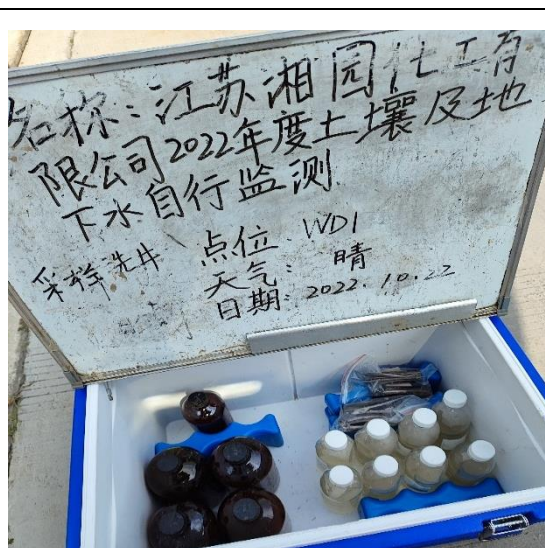 名称:江苏湘园化工有
限公司2022年度土壤及地
下水自行监测
采样洗井
点位 WD1
天气: 晴
日期: 2022.10.22